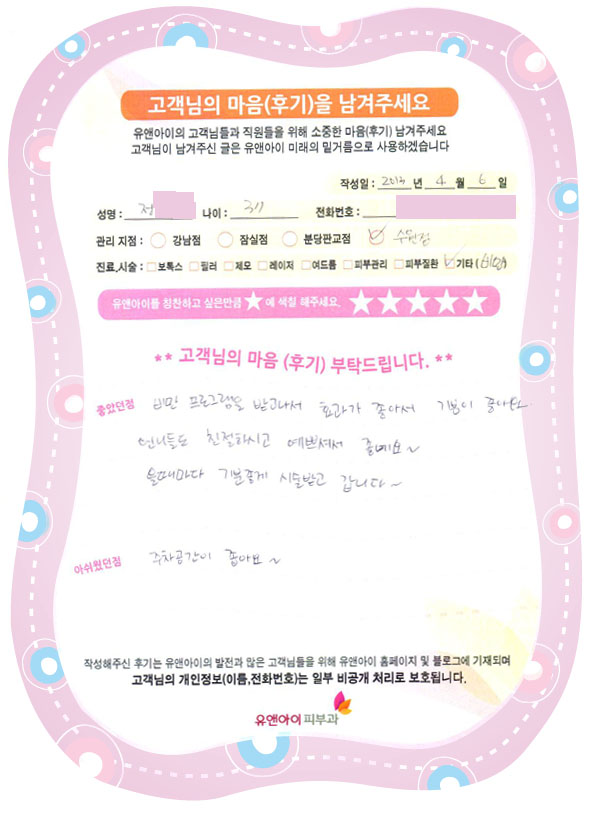 고객님의 마음(후기)을 남겨주세요
유앤아이의 고객님들과 직원들을 위해 소중한 마음(후기) 남겨주세요
고객님이 남겨주신 글은 유앤아이 미래의 밑거름으로 사용하겠습니다
작성일 : 2013 년 4 월 6 일
성명 : 정 나이 : 31 전화번호 :
관리 지점 : 강남점 잠실점 분당판교점 수원점
진료,시술 : 보톡스 필러 제모 레이저 여드름 피부관리 피부질환 기타 (비만)
유앤아이를 칭찬하고 싶은만큼 ★ 에 색칠 해주세요. ★★★★★
** 고객님의 마음 (후기) 부탁드립니다. **
좋았던점 비만 프로그램을 받고나서 효과가 좋아서 기분이 좋아요
언니들도 친절하시고 예쁘셔서 좋네요~
올때마다 기분좋게 시술받고 갑니다~
아쉬웠던점 주차공간이 좁아요~
작성해주신 후기는 유앤아이의 발전과 많은 고객님들을 위해 유앤아이 홈페이지 및 블로그에 기재되며
고객님의 개인정보(이름,전화번호)는 일부 비공개 처리로 보호됩니다.
유앤아이피부과